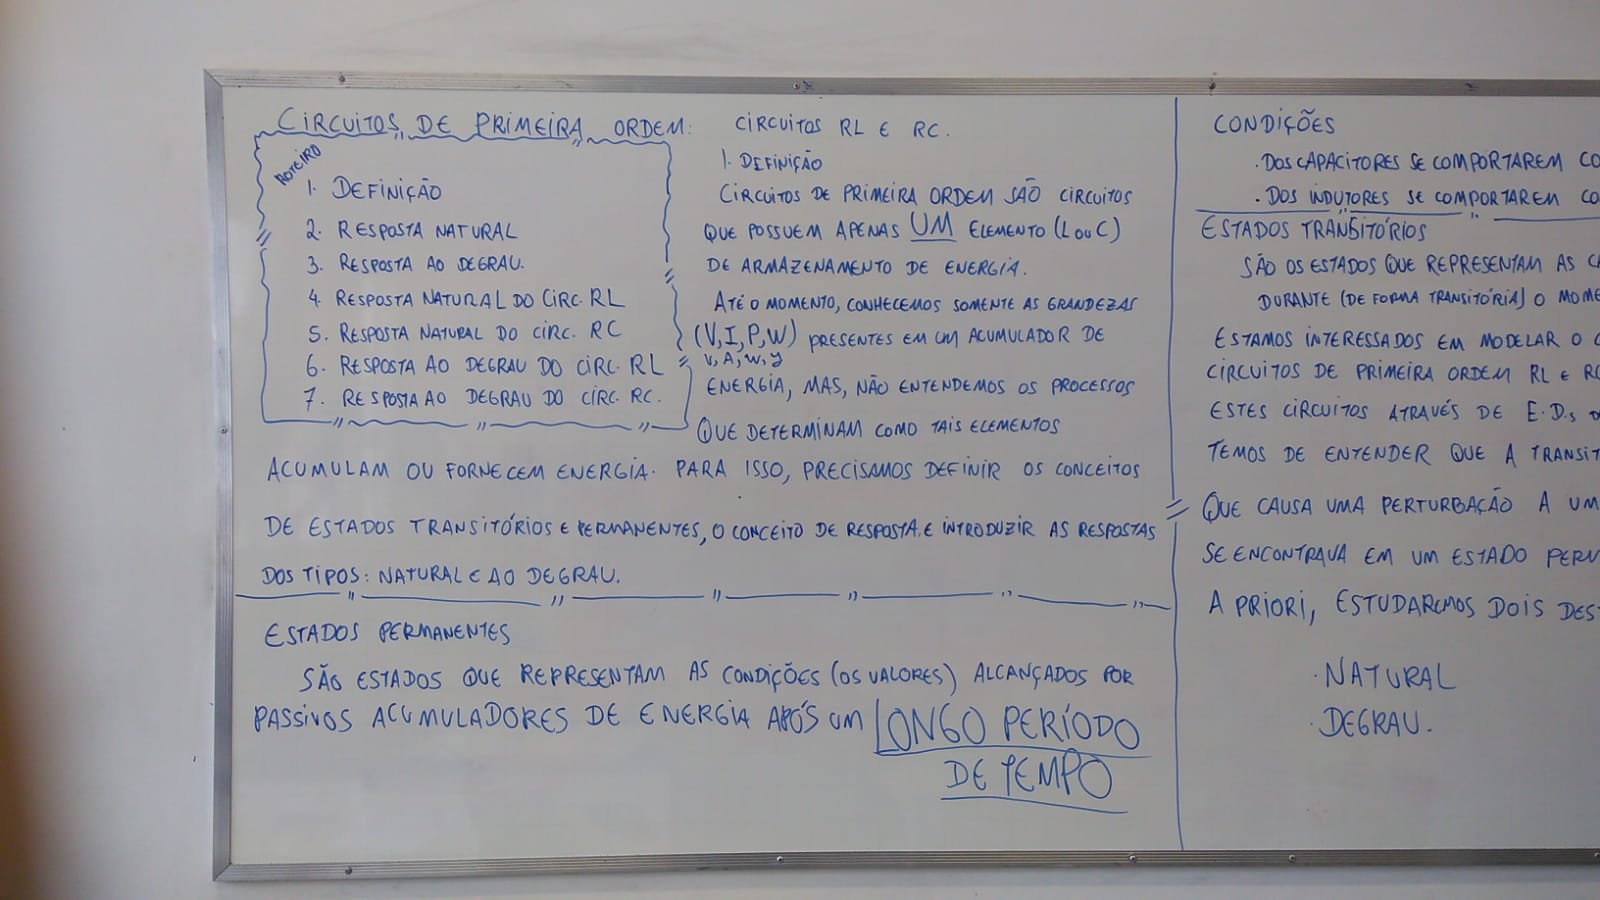 CIRCUITOS DE PRIMEIRA ORDEM: CIRCUITOS RL E RC.
ROTEIRO
1. DEFINIÇÃO
2. RESPOSTA NATURAL
3. RESPOSTA AO DEGRAU.
4. RESPOSTA NATURAL DO CIRC. RL
5. RESPOSTA NATURAL DO CIRC. RC
6. RESPOSTA AO DEGRAU DO CIRC. RL
7. RESPOSTA AO DEGRAU DO CIRC. RC.
1. DEFINIÇÃO
CIRCUITOS DE PRIMEIRA ORDEM SÃO CIRCUITOS
QUE POSSUEM APENAS UM ELEMENTO (L ou C)
DE ARMAZENAMENTO DE ENERGIA.
ATÉ O MOMENTO, CONHECEMOS SOMENTE AS GRANDEZAS
(V, I, P, W) PRESENTES EM UM ACUMULADOR DE
V, A, W, J
ENERGIA, MAS, NÃO ENTENDEMOS OS PROCESSOS
QUE DETERMINAM COMO TAIS ELEMENTOS
ACUMULAM OU FORNECEM ENERGIA. PARA ISSO, PRECISAMOS DEFINIR OS CONCEITOS
DE ESTADOS TRANSITÓRIOS E PERMANENTES, O CONCEITO DE RESPOSTA E INTRODUZIR AS RESPOSTAS
DOS TIPOS: NATURAL E AO DEGRAU.
ESTADOS PERMANENTES
SÃO ESTADOS QUE REPRESENTAM AS CONDIÇÕES (OS VALORES) ALCANÇADOS POR
PASSIVOS ACUMULADORES DE ENERGIA APÓS UM LONGO PERÍODO
DE TEMPO
CONDIÇÕES
. DOS CAPACITORES SE COMPORTAREM CO
. DOS INDUTORES SE COMPORTAREM CO
ESTADOS TRANSITÓRIOS
SÃO OS ESTADOS QUE REPRESENTAM AS
DURANTE (DE FORMA TRANSITÓRIA) O MOME
ESTAMOS INTERESSADOS EM MODELAR O
CIRCUITOS DE PRIMEIRA ORDEM RL E RC
ESTES CIRCUITOS ATRAVÉS DE E.D.s
TEMOS DE ENTENDER QUE A TRANSIT
QUE CAUSA UMA PERTURBAÇÃO A UM
SE ENCONTRAVA EM UM ESTADO PERM
A PRIORI, ESTUDAREMOS DOIS DES
. NATURAL
. DEGRAU.